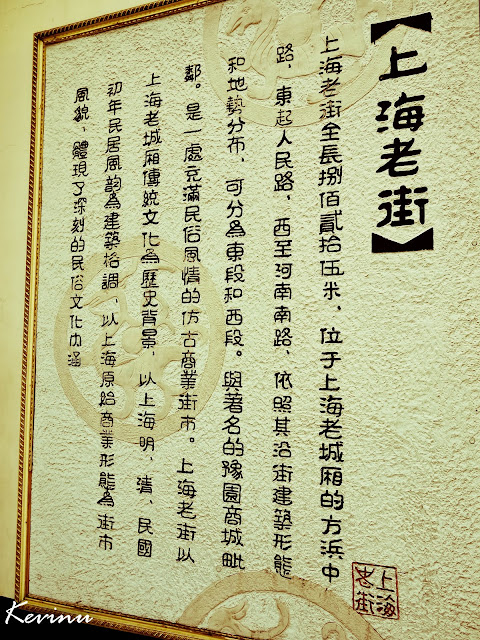 【上海老街】
上海老街全長捌佰貳拾伍米，位于上海老城厢的方浜中
路，東起人民路，西至河南南路，依照其沿街建築形態
和地勢分布，可分為東段和西段。與著名的豫園商城毗
鄰。是一處充滿民俗風情的仿古商業街市。上海老街以
上海老城厢傳統文化為歷史背景，以上海明、清、民國
初年民居風韵為建築格調，以上海原始商業形態為街市
風貌，體現了深刻的民俗文化内涵
上海
老街
Kevinu